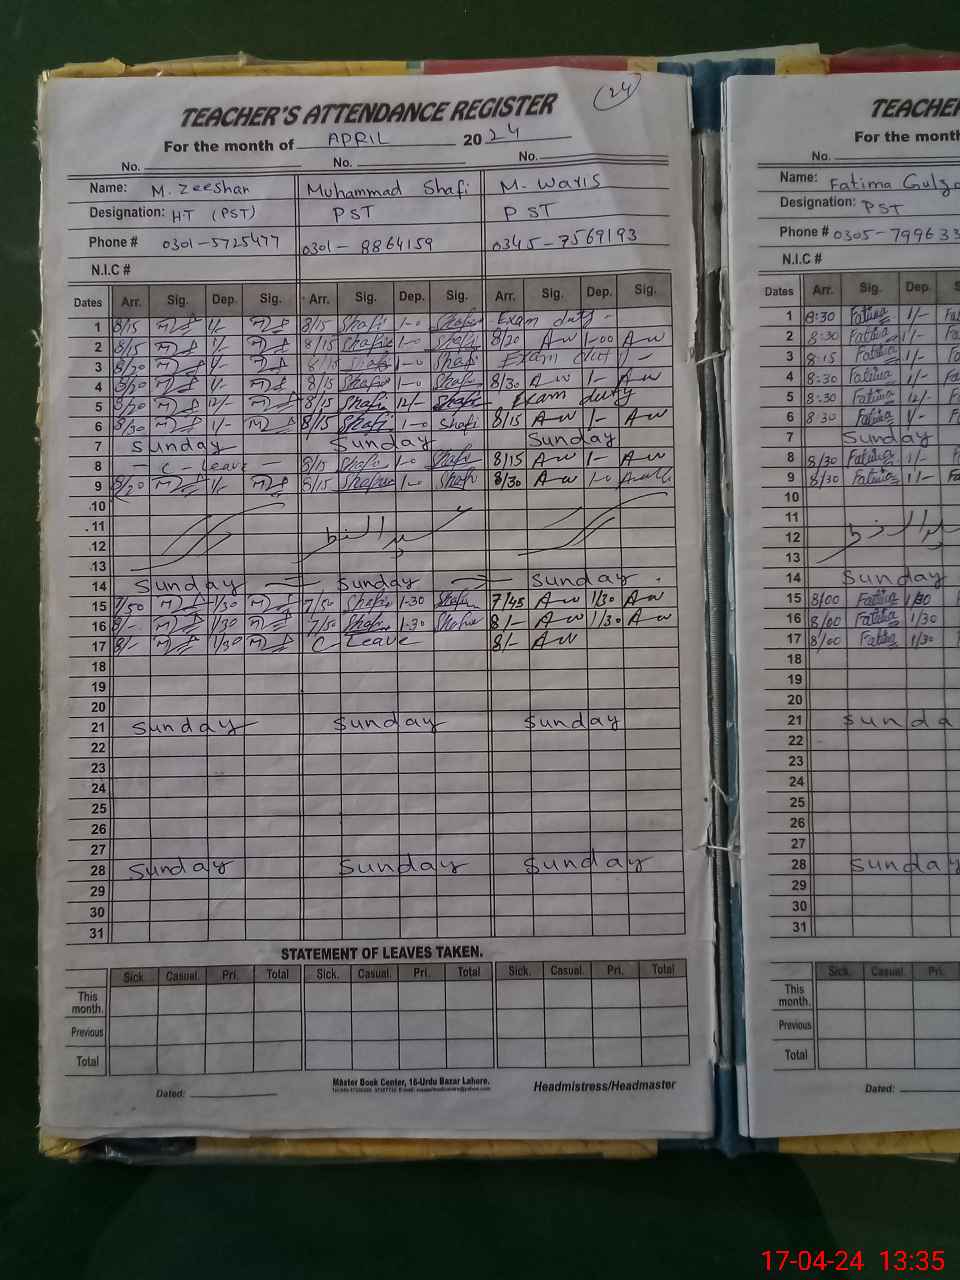 24
TEACHER'S ATTENDANCE REGISTER
For the month of APRIL 2024
No. No. No.
Name: M. Zeeshan Muhammad Shafi M. Waris
Designation: HT (PST) PST PST
Phone # 0301-5725477 0301-8864159 0345-7569193
N.I.C #
Dates Arr. Sig. Dep. Sig. Arr. Sig. Dep. Sig. Arr. Sig. Dep. Sig.
1 8/15 1/- 8/15 Shafi 1-0 Shafi Exam duty -
2 8/15 1/- 8/15 Shafi 1-0 Shafi 8/20 A-w 1-00 A-w
3 8/20 1/- 8/15 Shafi 1-0 Shafi Exam duty -
4 8/20 1/- 8/15 Shafi 1-0 Shafi 8/30 A-w 1- A-w
5 8/20 12/- 8/15 Shafi 12/- Shafi Exam duty
6 8/30 1/- 8/15 Shafi 1-0 Shafi 8/15 A-w 1- A-w
7 Sunday Sunday Sunday
8 - C - Leave - 8/15 Shafi 1-0 Shafi 8/15 A-w 1- A-w
9 8/20 1/- 8/15 Shafi 1-0 Shafi 8/30 A-w 1-0
10
11
12 عید الفطر
13
14 Sunday Sunday Sunday
15 7/50 1/30 7/50 Shafi 1-30 Shafi 7/45 A-w 1/30 A-w
16 8/- 1/30 7/50 Shafi 1-30 Shafi 8/- A-w 1/30 A-w
17 8/- 1/30 C Leave 8/- A-w
18
19
20
21 Sunday Sunday Sunday
22
23
24
25
26
27
28 Sunday Sunday Sunday
29
30
31
STATEMENT OF LEAVES TAKEN.
Sick. Casual. Pri. Total Sick. Casual. Pri. Total Sick. Casual. Pri. Total
This month.
Previous
Total
Master Book Center, 16-Urdu Bazar Lahore.
Dated: Headmistress/Headmaster
TEACHER
For the month
No.
Name: Fatima
Designation: PST
Phone # 0305-79963
N.I.C #
Dates Arr. Sig. Dep.
1 8:30 Fatima 1/-
2 8:30 Fatima 1/-
3 8:15 Fatima 1/-
4 8:30 Fatima 1/-
5 8:30 Fatima 12/-
6 8:30 Fatima 1/-
7 Sunday
8 8/30 Fatima 1/-
9 8/30 Fatima 1-
10
11
12
13
14 Sunday
15 8/00 Fatima 1/30
16 8/00 Fatima 1/30
17 8/00 Fatima 1/30
18
19
20
21 Sunda
22
23
24
25
26
27
28 Sunday
29
30
31
Sick. Casual. Pri.
This month.
Previous
Total
Dated:
17-04-24 13:35